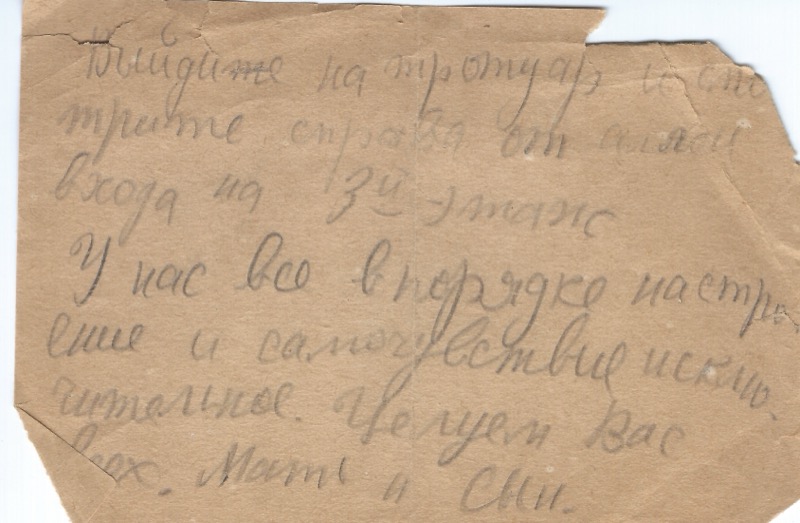 Выйдите на тротуар и смо
трите справа от
входа на 3й этаж
У нас все в порядке настро
ение и самочувствие исклю-
чительное. Целуем Вас
всех. Мать и Сын.